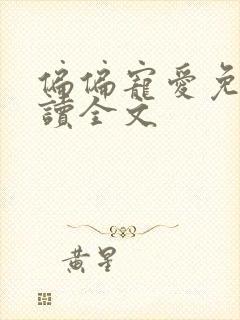 偏偏寵愛免
讀全文
黃星